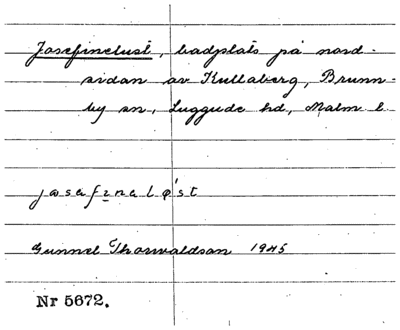 Josefinelust, badplats på nord-
sidan av Kullaberg, Brunn-
by sn, Luggude hd, Malm l.
josefinalø'st
Gunnel Thorwaldson 1945
Nr 5672.